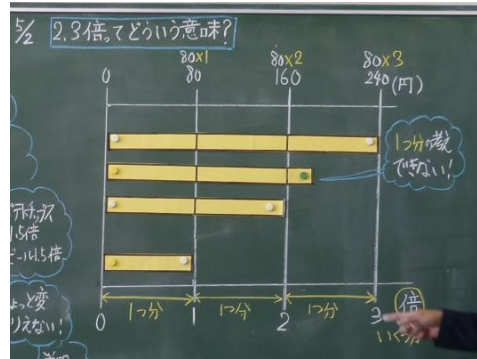 5/2 2.3倍ってどういう意味?
80×1 80×2 80×3
0 80 160 240(円)
1つ分の数え
できない!
ポテトチップス
1.5倍
ビール1.5倍
ちょっと変
りえない!
1つ分 1つ分 1つ分
0 1 2 3 倍
いくつ分